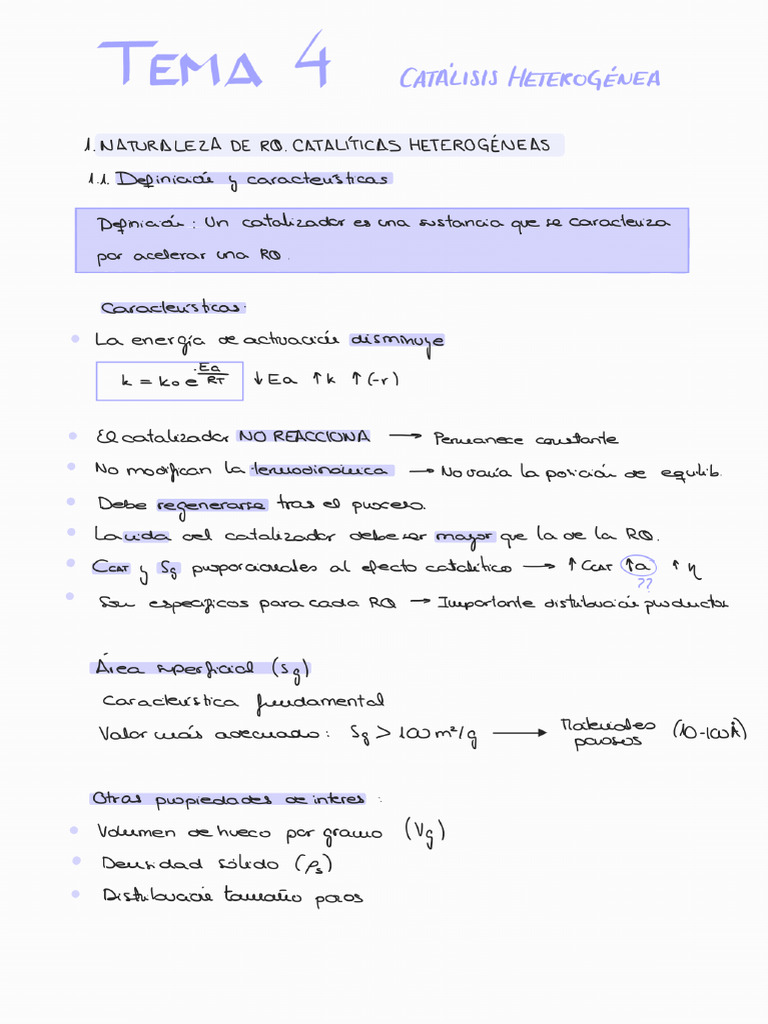 TEMA 4 CATÁLISIS HETEROGÉNEA
1. NATURALEZA DE RQ. CATALÍTICAS HETEROGÉNEAS
1.1. Definición y características
Definición: Un catalizador es una sustancia que se caracteriza
por acelerar una RQ.
Características:
La energía de activación disminuye
k = k₀ e^(-Ea/RT) ↓Ea ↑k ↑(-r)
El catalizador NO REACCIONA → Permanece constante
No modifican la termodinámica → No varía la posición de equilib.
Debe regenerarse tras el proceso.
La vida del catalizador debe ser mayor que la de la RQ.
C_CAT y Sg proporcionales al efecto catalítico → ↑C_CAT ↑a ↑η
??
Son específicos para cada RQ → Importante distribución productos
Área superficial (Sg)
Característica fundamental
Valor más adecuado: Sg > 100 m²/g → Materiales porosos (10-100Å)
Otras propiedades de interes:
Volumen de hueco por gramo (Vg)
Densidad sólido (ρs)
Distribución tamaño poros